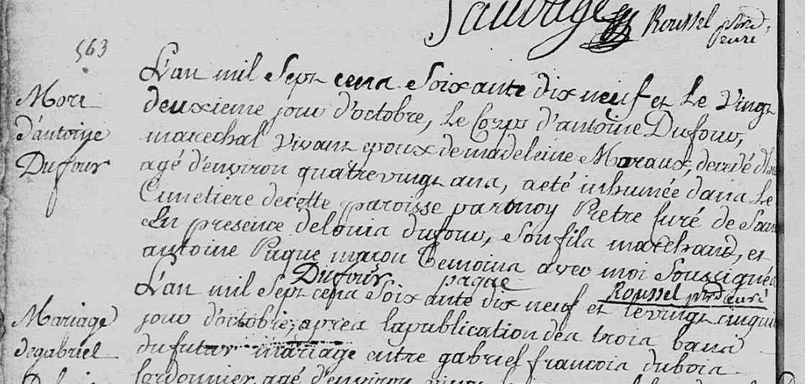 Sauvage Roussel ptre
curé
563
L'an mil Sept cens Soixante dix neuf et Le Vingt
Mort
d'antoine
Dufour
deuxieme jour d'octobre, Le Corps d'antoine Dufour,
marechal vivant epoux de madeleine Maraux, decedé
agé d'environ quatrevingt ans, a eté inhumée dans Le
Cimetiere de cette paroisse par moy Pretre Curé de
En presence de louis dufour, Son fils marchand, et
antoine Paque macon temoins avec moi Soussignés
Dufour paque Roussel ptre curé
L'an mil Sept cens Soixante dix neuf et le vingt cinquie
Mariage
de gabriel
jour d'octobre, apres la publication des trois bans
du futur mariage entre gabriel francois dubois
Cordonnier agé d'environ